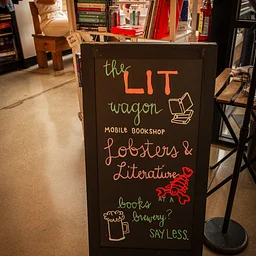 the
LIT
wagon
MOBILE BOOKSHOP
Lobsters &
Literature
AT A
books
brewery?
SAY LESS.